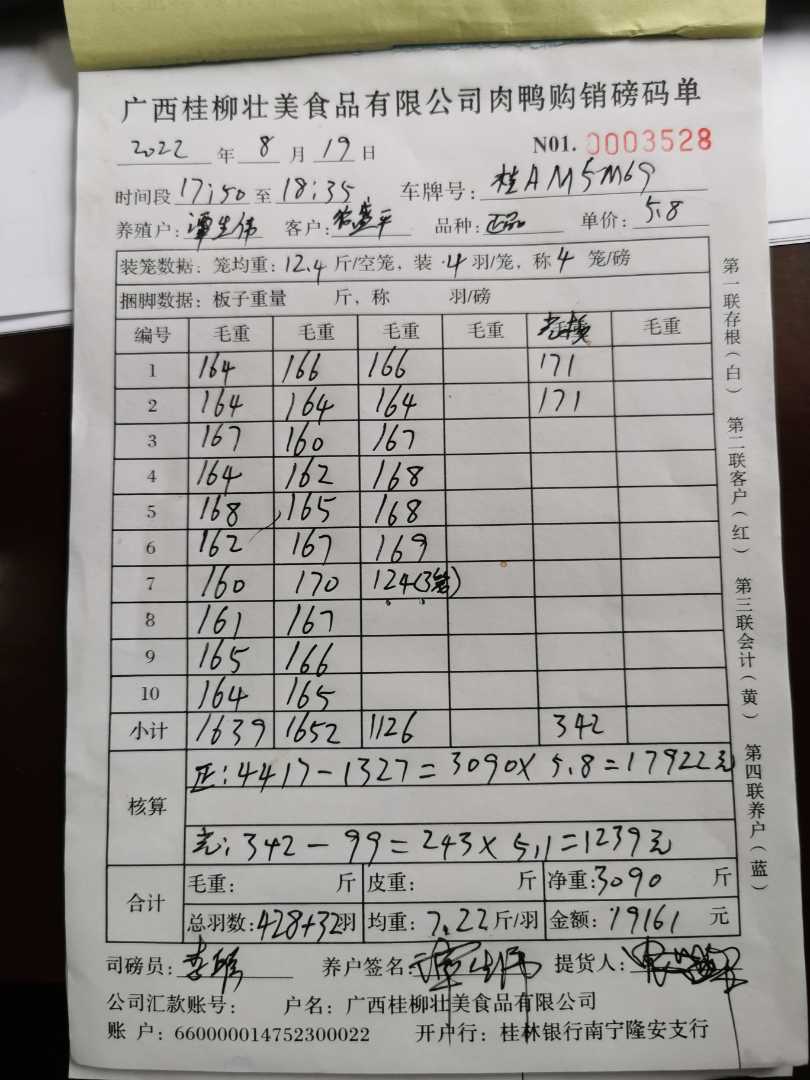 广西桂柳壮美食品有限公司肉鸭购销磅码单
2022 年 8 月 19 日 N01. 0003528
时间段 17:50 至 18:35 车牌号: 桂AM5M69
养殖户: 谭生伟 客户: 盛平 品种: 正品 单价: 5.8
装笼数据: 笼均重: 12.4 斤/空笼, 装 4 羽/笼, 称 4 笼/磅
捆脚数据: 板子重量 斤, 称 羽/磅
编号 毛重 毛重 毛重 毛重 毛重
1 164 166 166 171
2 164 164 164 171
3 167 160 167
4 164 162 168
5 168 165 168
6 162 167 169
7 160 170 124(3笼)
8 161 167
9 165 166
10 164 165
小计 1639 1652 1126 342
核算
正: 4417-1327=3090×5.8=17922元
342-99=243×5.1=1239元
合计
毛重: 斤 皮重: 斤 净重: 3090 斤
总羽数: 428+32羽 均重: 7.22 斤/羽 金额: 19161 元
司磅员: 李 养户签名: 谭生伟 提货人:
公司汇款账号: 户名: 广西桂柳壮美食品有限公司
账 户: 660000014752300022 开户行: 桂林银行南宁隆安支行
第一联存根(白) 第二联客户(红) 第三联会计(黄) 第四联养户(蓝)